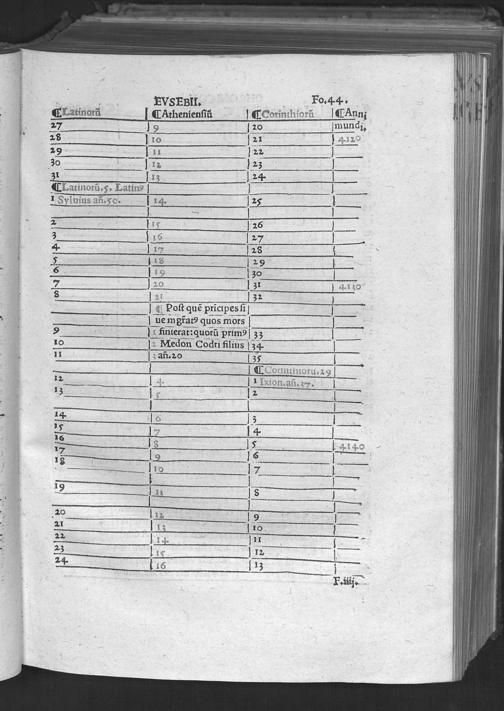 EVSEBII. Fo.44.
¶Latinorū ¶Atheniensiū ¶Corinthiorū ¶Anni
27 9 20 mundi,
28 10 21 4120
29 11 22
30 12 23
31 13 24
¶Latinorū.5. Latinꝰ
1 Syluius añ.50. 14 25
2 15 26
3 16 27
4 17 28
5 18 29
6 19 30
7 20 31 4130
8 21 32
¶ Post quē prīcipes si
ue mgr̄atꝰ quos mors
9 1 finierat:quorū primꝰ 33
10 2 Medon Codri filius 34
11 3 añ.20 35
¶Corinthiorū.29
12 4 1 Ixion.añ.37.
13 5 2
14 6 3
15 7 4
16 8 5
17 9 6 4140
18 10 7
19 11 8
20 12 9
21 13 10
22 14 11
23 15 12
24 16 13
F.iiij.